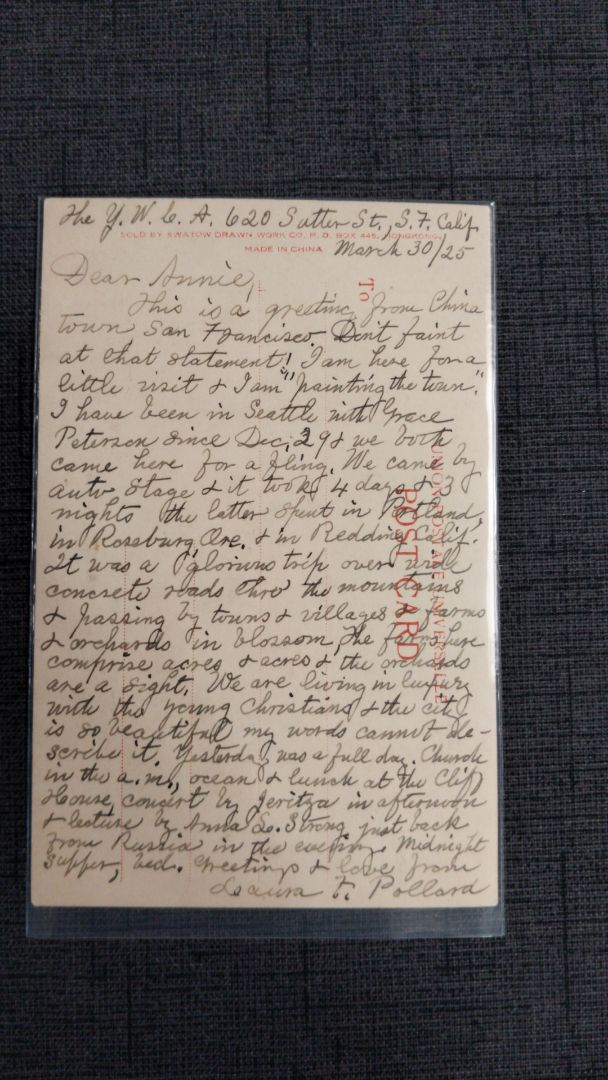 The Y. W. C. A. 620 Sutter St., S. F. Calif
SOLD BY SWATOW DRAWN WORK CO. P. O. BOX 445, HONGKONG.
MADE IN CHINA
March 30/25
Dear Annie,
To
This is a greeting from China
town, San Francisco. Don't faint
at that statement! I am here for a
little visit & I am "painting the town".
I have been in Seattle with Grace
Peterson since Dec. 29 & we both
came here for a fling. We came by
auto stage & it took 4 days & 3
nights the latter spent in Portland,
in Roseburg Ore. & in Redding Calif.
It was a glorious trip over wide
concrete roads thro' the mountains
& passing by towns & villages & farms
& orchards in blossom, the farms here
comprise acres & acres & the orchards
are a sight. We are living in luxury
with the Young Christians & the city
is so beautiful my words cannot de-
scribe it. Yesterday was a full day. Church
in the a.m., ocean & lunch at the Cliff
House, concert by Jeritza in afternoon
& lecture by Anna L. Strong just back
from Russia in the evening. Midnight
supper, bed. Greetings & love from
Laura F. Pollard
UNION POSTALE UNIVERSELLE
POST CARD